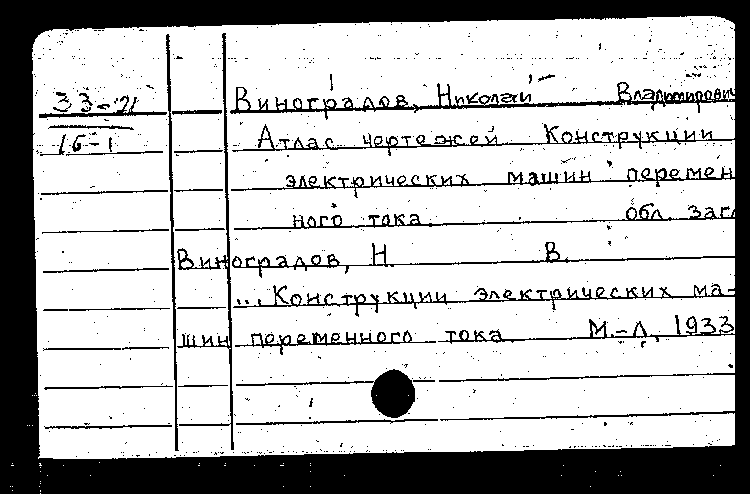 33-21
16-1
Виноградов, Николай Владимирович
Атлас чертежей Конструкции
электрических машин перемен
ного тока. обл. загл
Виноградов, Н. В.
... Конструкции электрических ма-
шин переменного тока. М.-Л., 1933